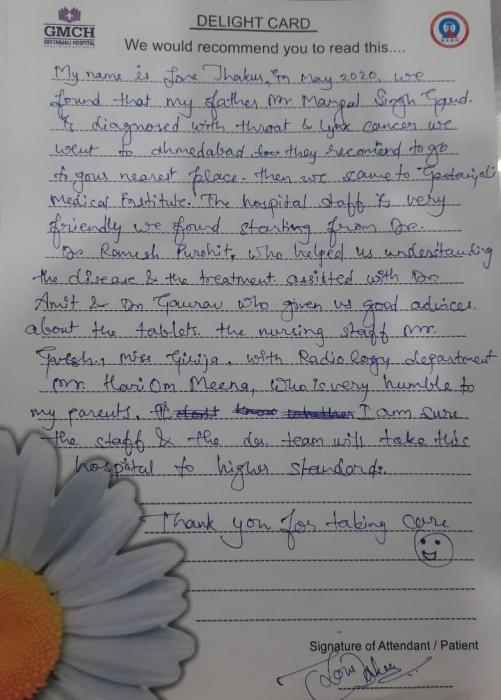 GMCH
GEETANJALI HOSPITAL
DELIGHT CARD
We would recommend you to read this....
My name is Love Thakur, in May 2020, we
found that my father Mr Mangal Singh Gaud.
is diagnosed with throat & lynx cancer we
went to ahmedabad they recomend to go
to your nearest place. then we came to Geetanjali
Medical Institute. The hospital staff is very
friendly we found starting from Dr.
Dr Romesh Purohit, who helped us understanding
the disease & the treatment. assisted with Dr
Amit & Dr Gaurav who given us good advices.
about the tablets. the nursing staff Mr.
Miss Girija. with Radiology department
Mr. Hari Om Meena, who is very humble to
my parents. I don't know whether I am sure
the staff & the team will take this
hospital to higher standards.
Thank you for taking care
Signature of Attendant / Patient